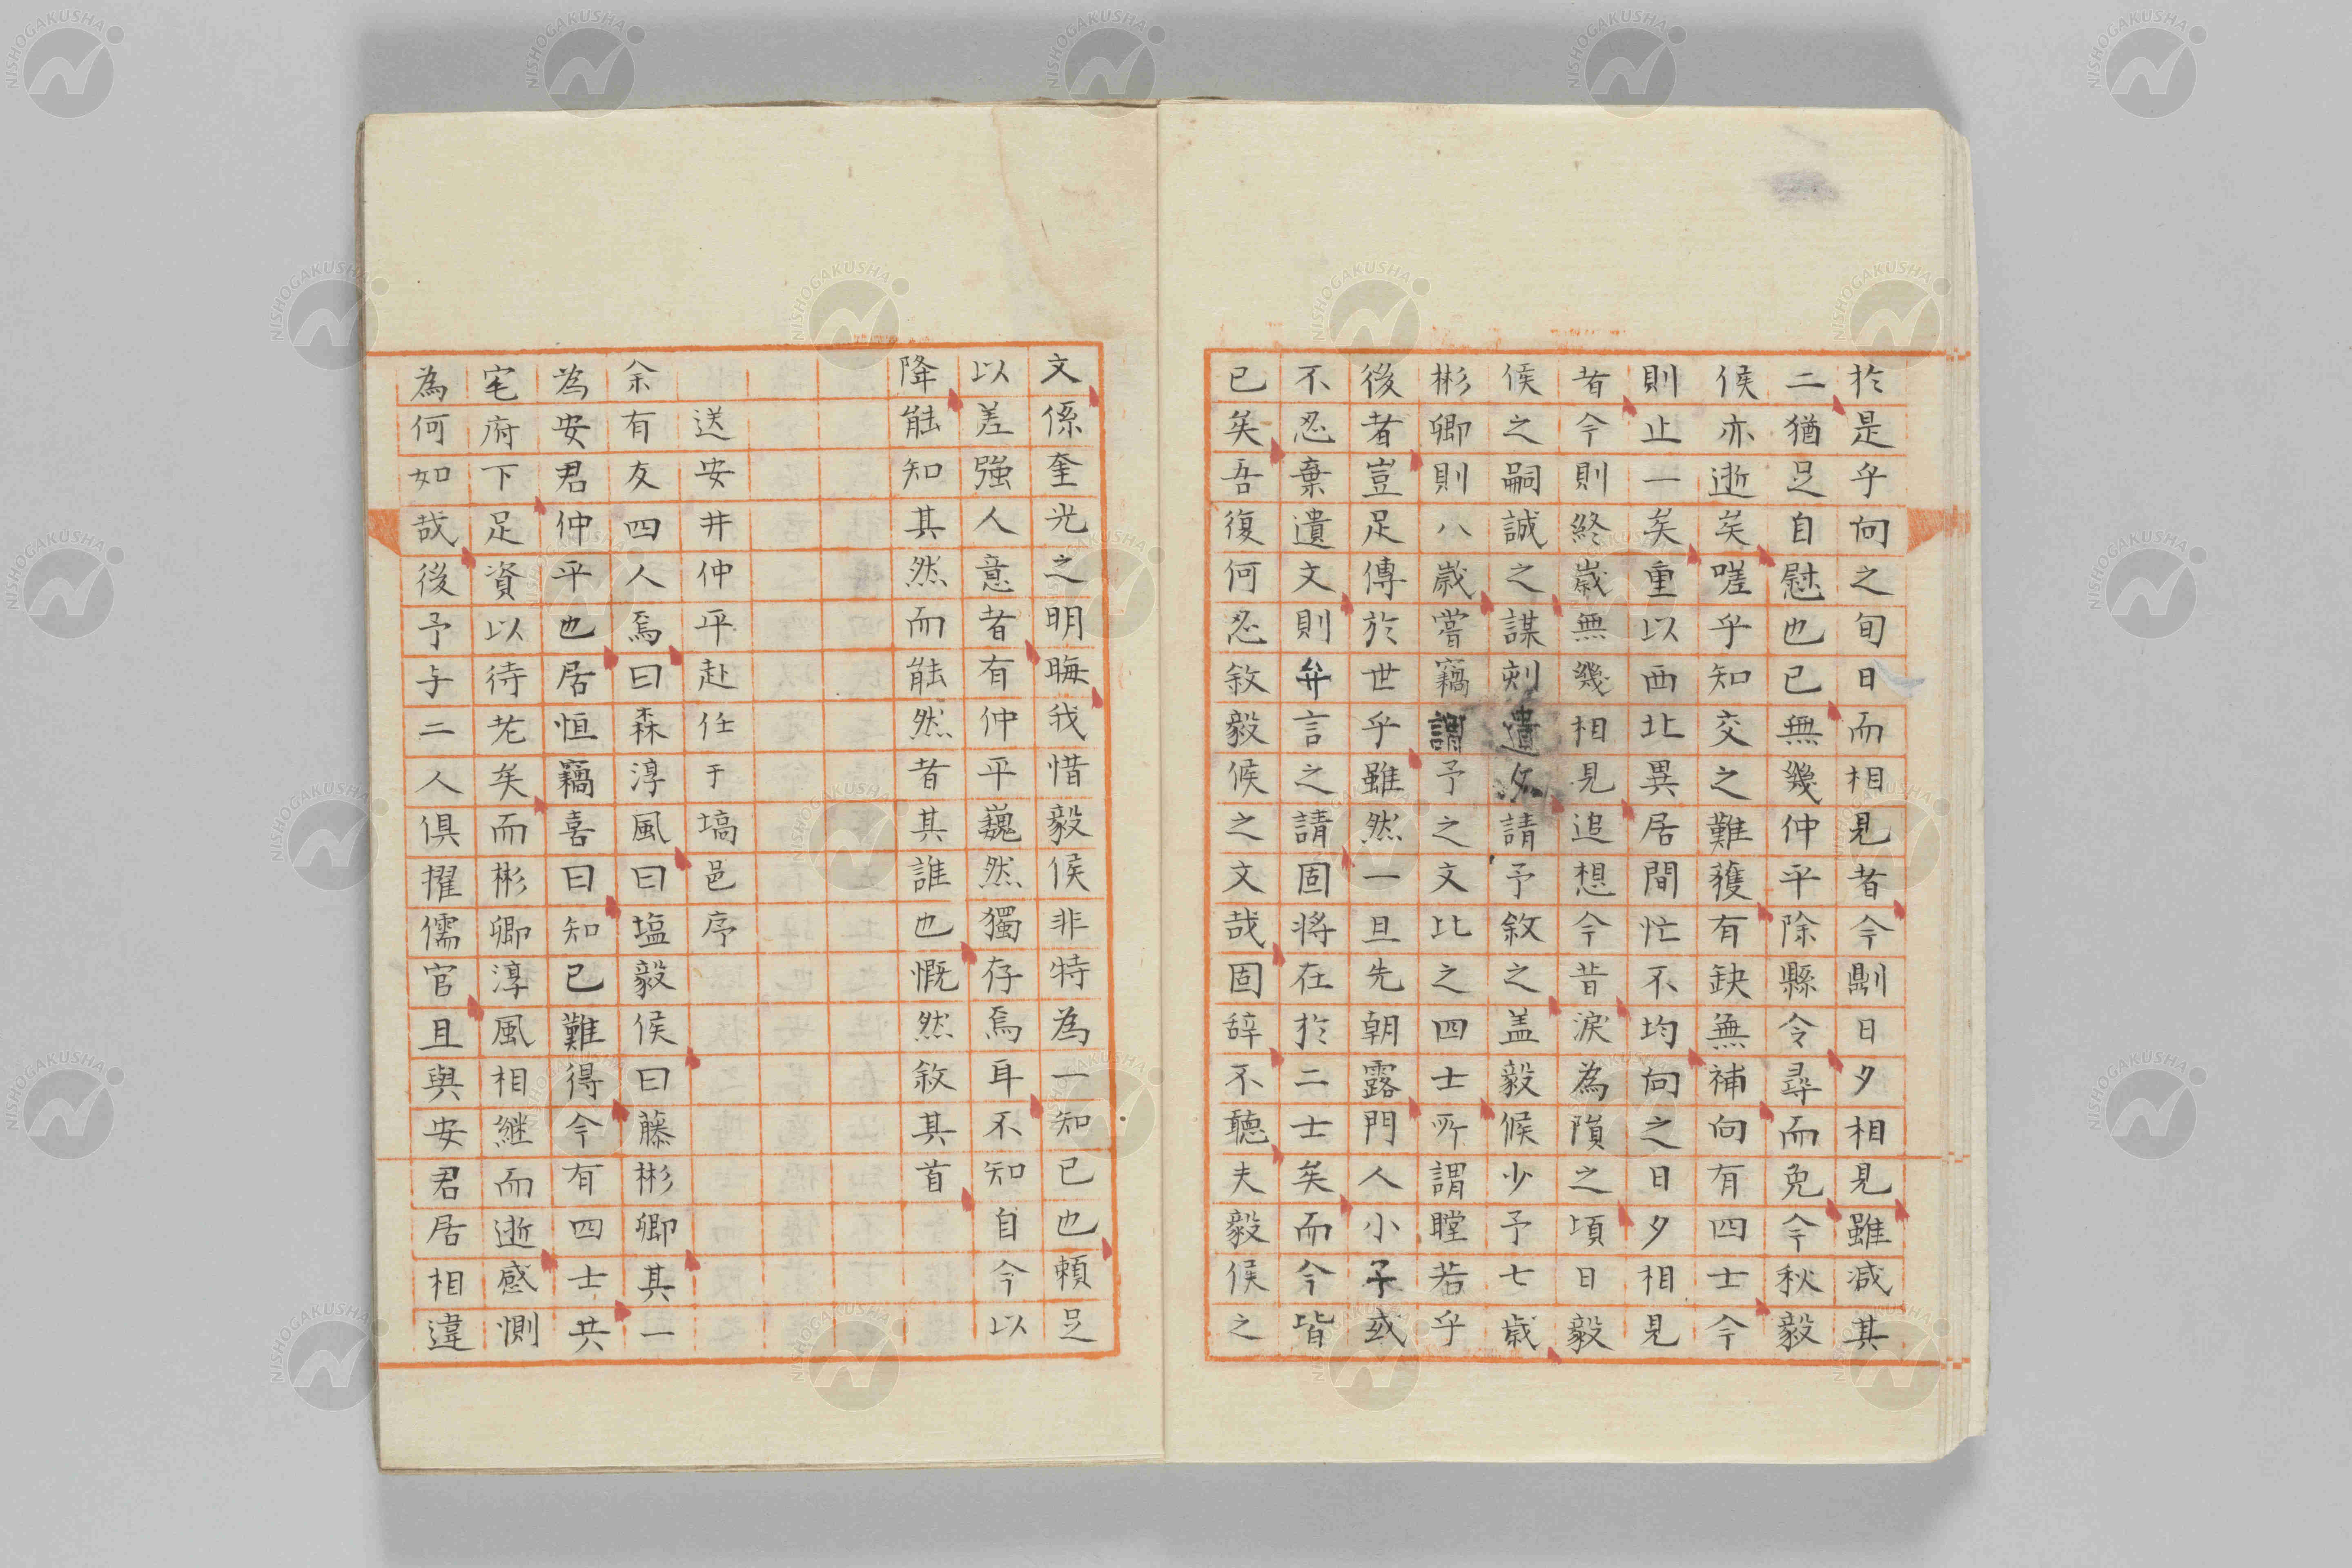 於是乎向之旬日而相見者今則日夕相見雖減其
二猶足自慰也已無幾仲平除縣令尋而免今秋毅
侯亦逝矣嗟乎知交之難獲有缺無補向有四士今
則止一矣重以西北異居間忙不均向之日夕相見
者今則終歲無幾相見追想今昔淚為隕之頃日毅
侯之嗣誠之謀刻遺文請予敘之盖毅候少予七歲
彬卿則八歲嘗竊謂予之文比之四士所謂瞠若乎
後者豈足傳於世乎雖然一旦先朝露門人小子或
不忍棄遺文則弁言之請固將在於二士矣而今皆
已矣吾復何忍敘毅候之文哉固辞不聽夫毅侯之
文係奎光之明晦我惜毅侯非特為一知已也賴足
以差強人意者有仲平巍然獨存焉耳不知自今以
降能知其然而能然者其誰也慨然敘其首
送安井仲平赴任于塙邑序
余有友四人焉曰森淳風曰塩毅侯曰藤彬卿其一
為安君仲平也居恒竊喜曰知已難得今有四士共
宅府下足資以待老矣而彬卿淳風相継而逝感惻
為何如哉後予与二人俱擢儒官且與安君居相違
NISHOGAKUSHA